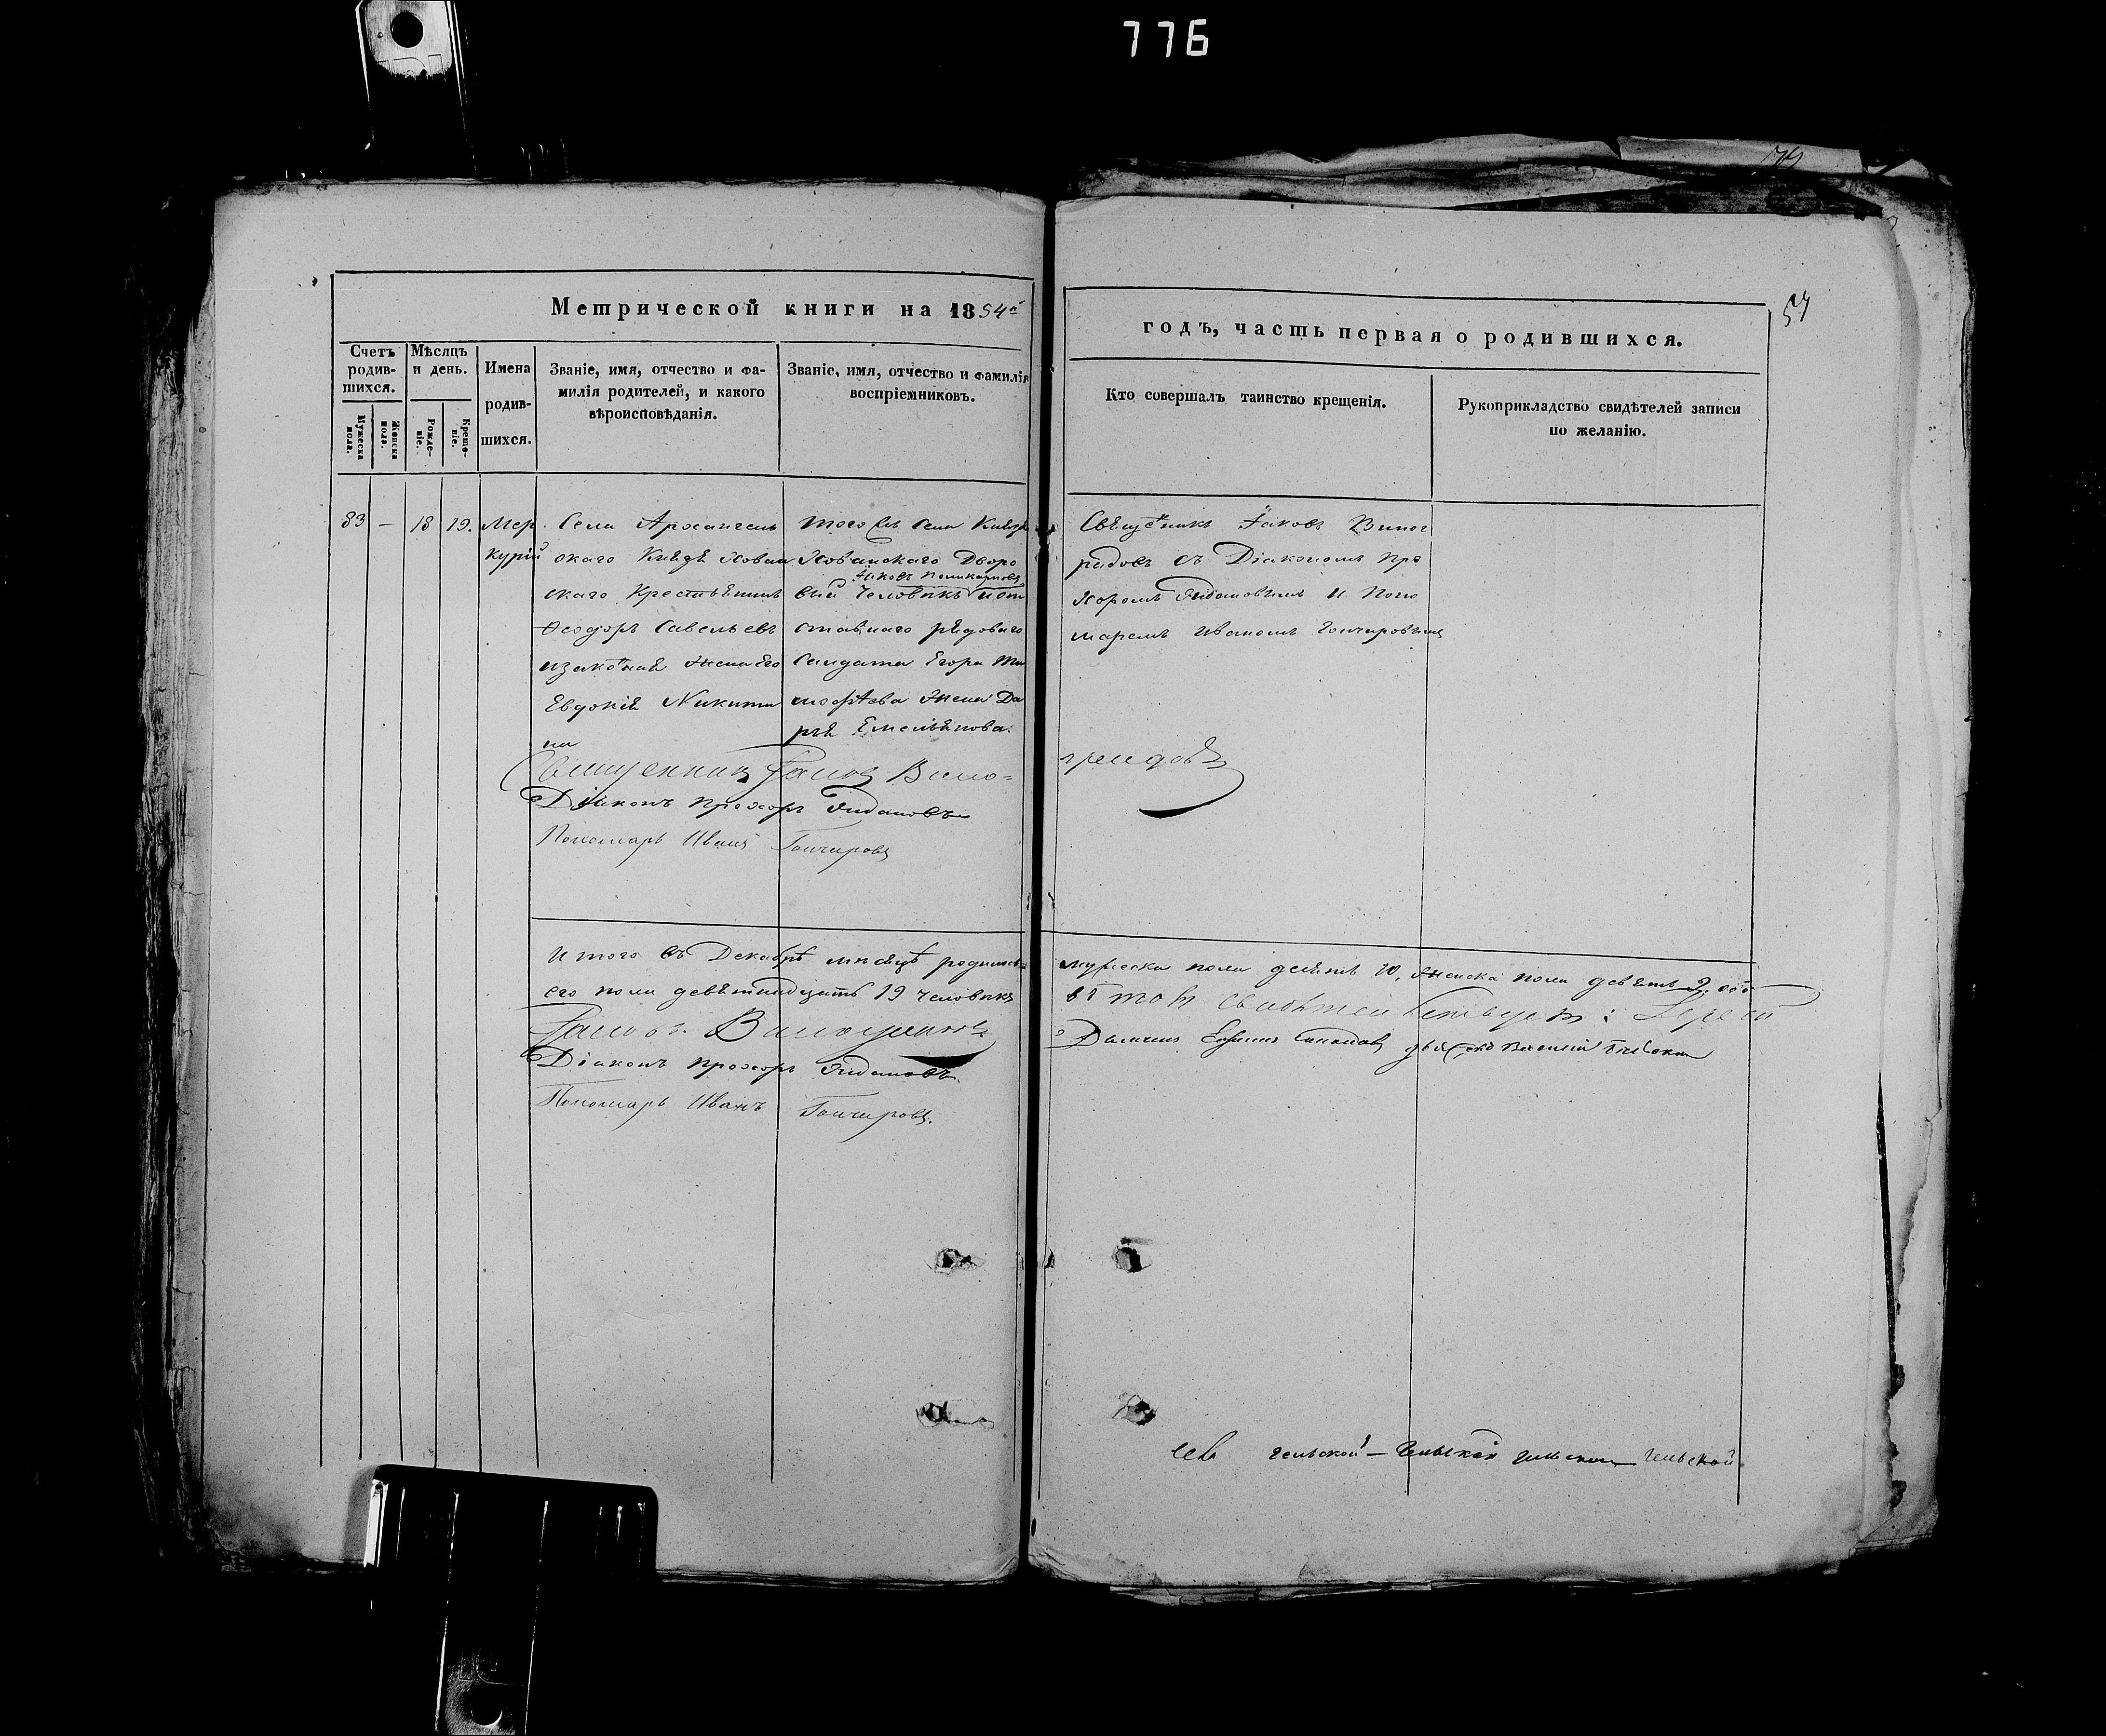 776
Метрической книги на 1854й
годъ, часть первая о родившихся.
57
Счетъ родив-шихся.
Мужеска пола.
Женска пола.
Мѣсяцъ и день.
Рожде-ніе.
Креще-ніе.
Имена
родив-
шихся.
Званіе, имя, отчество и фа-
милія родителей, и какого
вѣроисповѣданія.
Званіе, имя, отчество и фамилія
воспріемниковъ.
Кто совершалъ таинство крещенія.
Рукоприкладство свидѣтелей записи
по желанію.
83 — 18 19. Мер
курій
Села Архангель
скаго Князя Хован
скаго Крестьянинъ
Ѳеодоръ Савельевъ
и законная жена Его
Евдокія Никити
на
того же Села Князя
Хованскаго Дворо
Яковъ Поликарповъ
вый Человѣкъ и от
ставнаго рядоваго
Салдата Егора Ти
мофѣева жена Да
рья Емельянова.
Священникъ Іаковъ Виног
радовъ съ Діакономъ Про
хоромъ и Поно
маремъ Иваномъ Гончаровымъ
Священникъ Іаковъ Вино=
градовъ
Діаконъ Прохоръ
Пономарь Иванъ Гончаровъ
Итого въ Декабрѣ мѣсяцѣ родилось
мужеска пола десять 10, женска пола девять 9, обо
его пола девятнадцать 19 человѣкъ
Іаковъ Виноградовъ
Діаконъ Прохоръ
Пономарь Иванъ Гончаровъ.
гельской